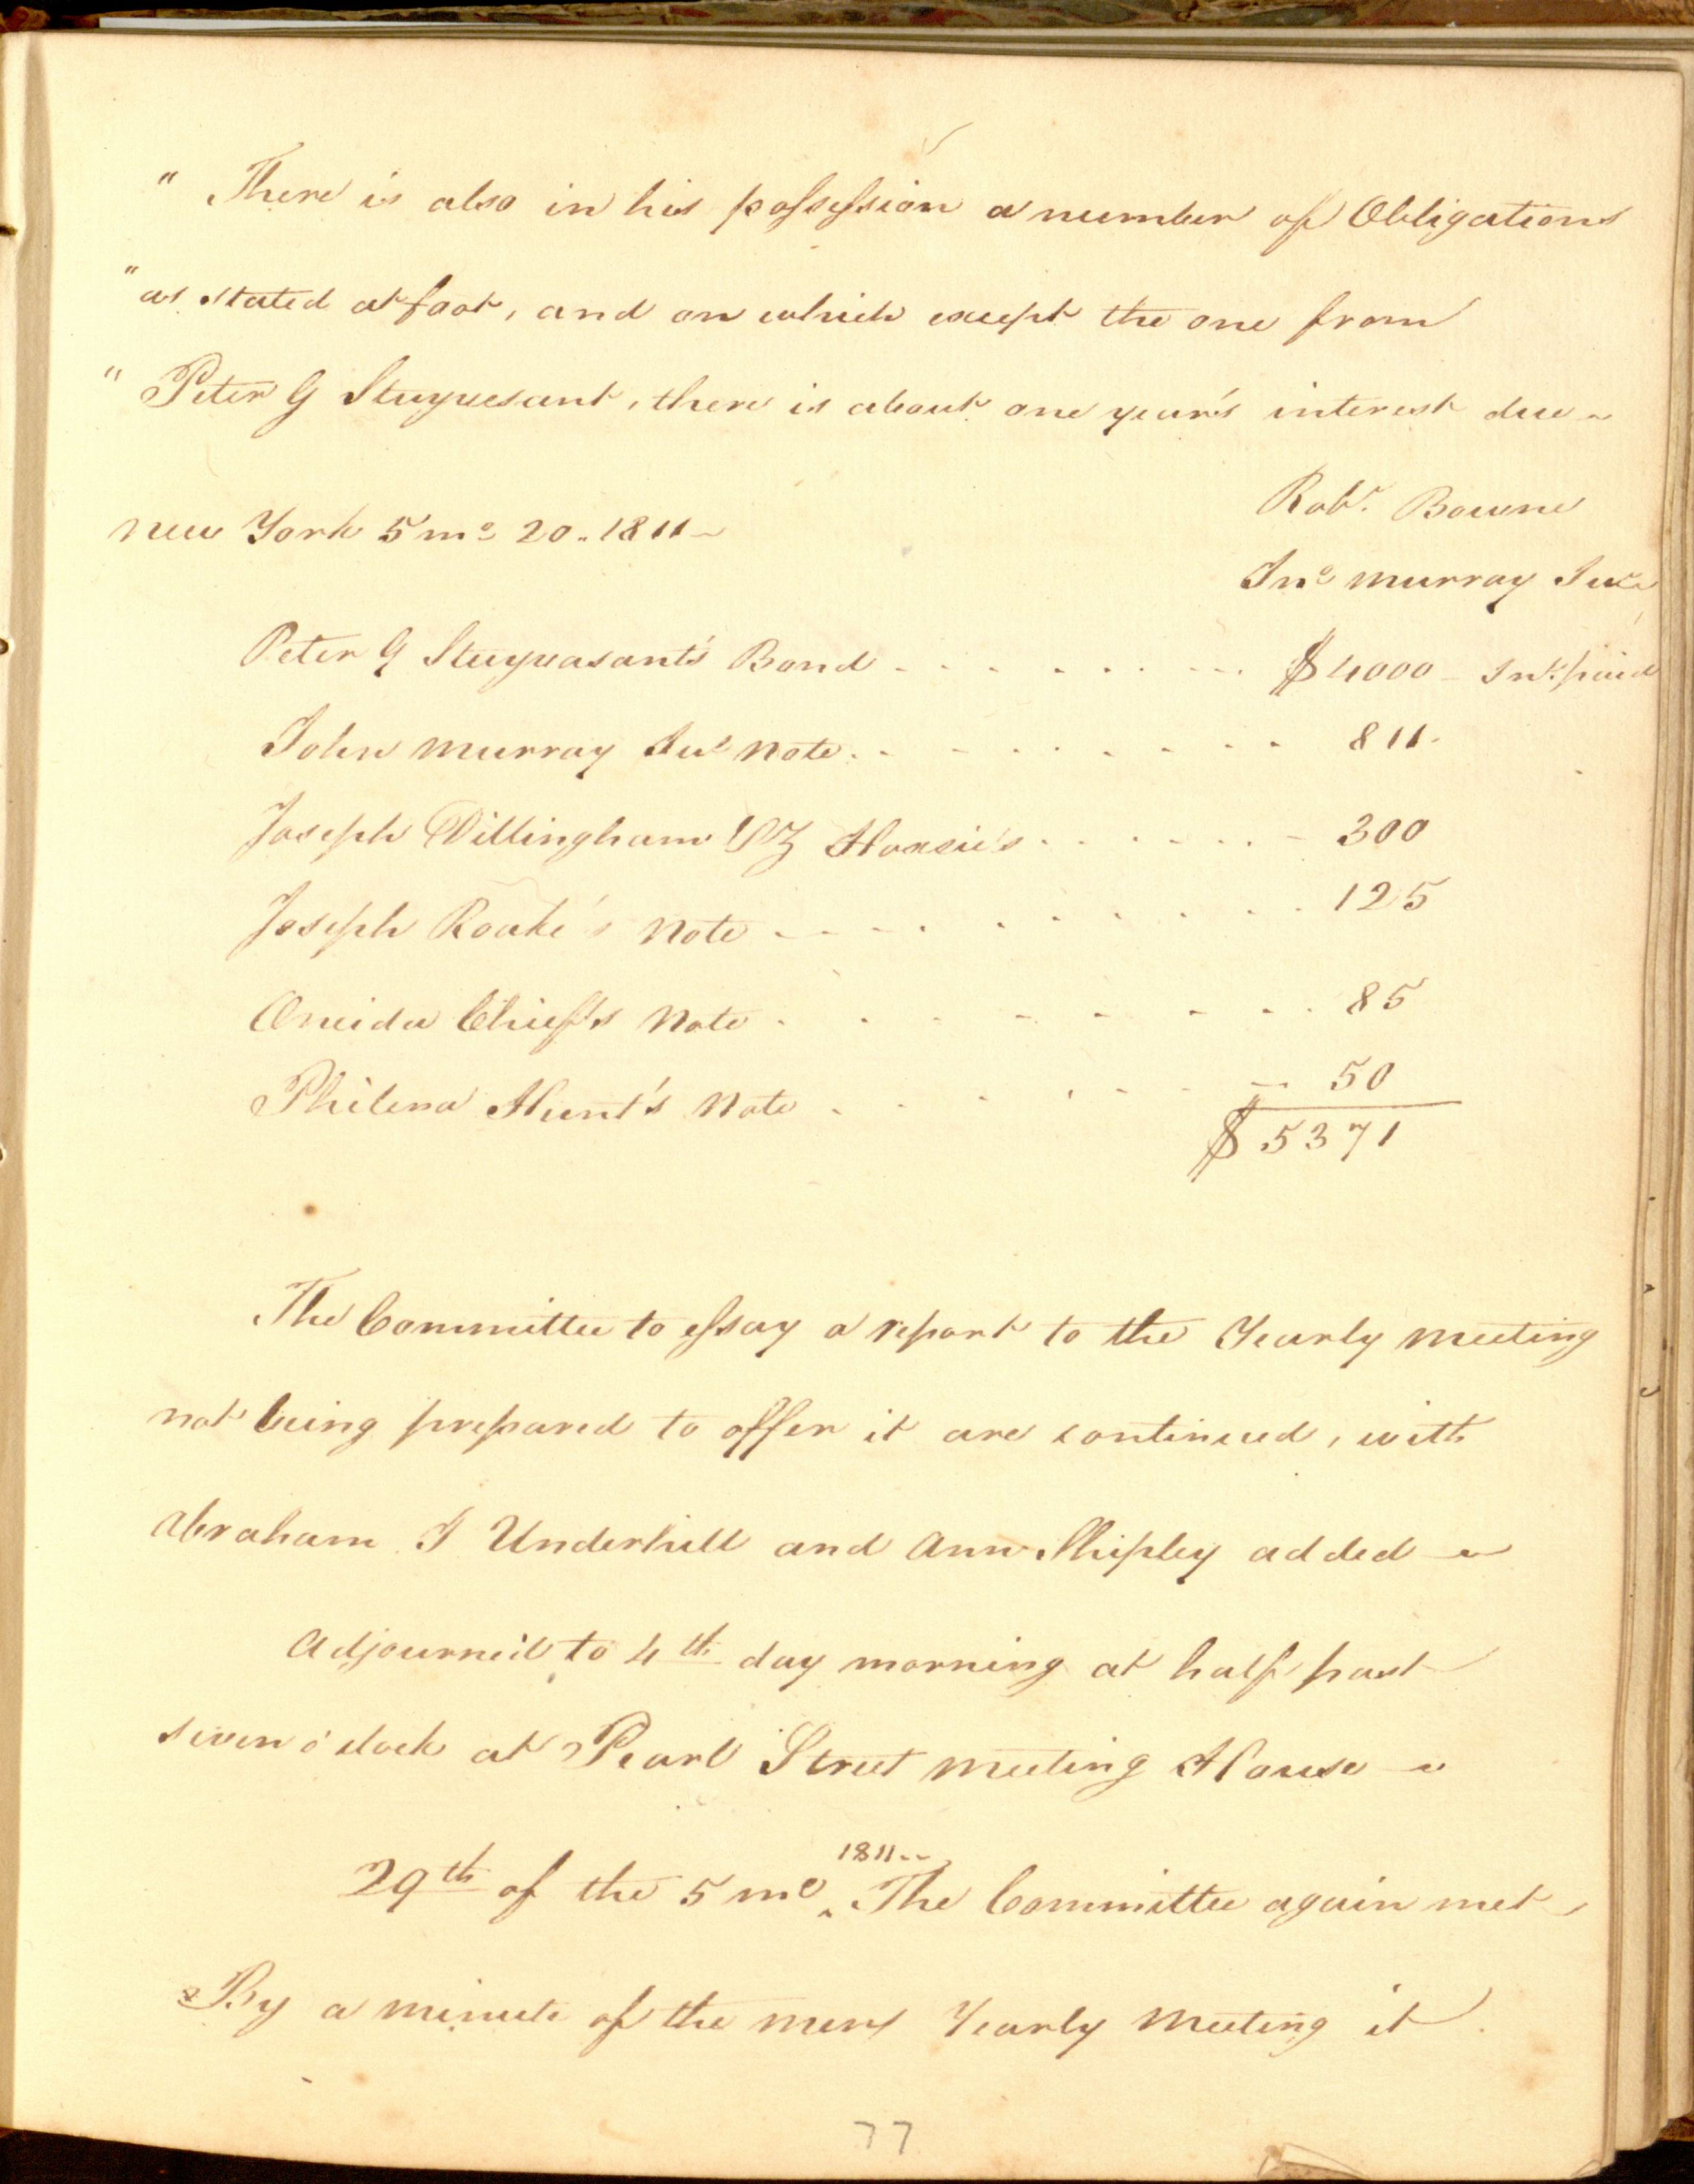 " There is also in his possession a number of Obligations
" as stated at foot, and on which except the one from
" Peter G Stuyvesant, there is about one year's interest due ~
Robt. Bowne
New York 5 mo 20.. 1811 ~
Jno Murray Junr
Peter G Stuyvasant's Bond - - - - - - - - - $4000 - Int. paid
John Murray Junr Note - - - - - - - - - 811.
Joseph Dillingham & Z Hoxsie's - - - - - - - 300
Joseph Roake's Note - - - - - - - - - 125
Oneida Chief's Note - - - - - - - - - 85
Philena Hunt's Note - - - - - - - - 50
$ 5371
The Committee to essay a report to the Yearly Meeting
not being prepared to offer it are continued, with
Abraham I Underhill and Ann Shipley added ~
Adjourned to 4th day morning at half past
seven o'clock at Pearl Street Meeting House ~
29th of the 5 mo ‸ 1811.. The Committee again met,
By a minute of the mens Yearly Meeting it
77